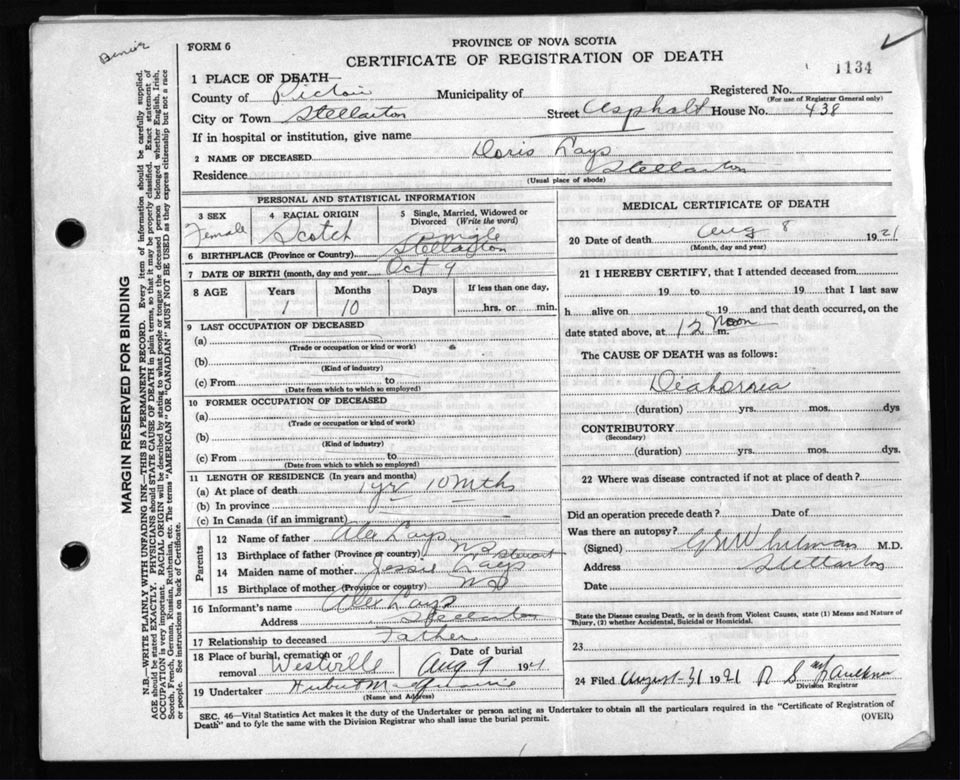 FORM 6
PROVINCE OF NOVA SCOTIA
CERTIFICATE OF REGISTRATION OF DEATH
1134
1 PLACE OF DEATH—
County of Pictou Municipality of Registered No.
(For use of Registrar General only)
City or Town Stellarton Street Asphalt House No. 438
If in hospital or institution, give name
2 NAME OF DECEASED Doris Lays
Residence Stellarton
(Usual place of abode)
PERSONAL AND STATISTICAL INFORMATION
3 SEX 4 RACIAL ORIGIN 5 Single, Married, Widowed or Divorced (Write the word)
Female Scotch Single
6 BIRTHPLACE (Province or Country) Stellarton
7 DATE OF BIRTH (month, day and year) Oct 9
8 AGE Years Months Days If less than one day,
1 10 hrs. or min.
9 LAST OCCUPATION OF DECEASED
(a)
(Trade or occupation or kind or work)
(b)
(Kind of industry)
(c) From to
(Date from which to which so employed)
10 FORMER OCCUPATION OF DECEASED
(a)
(Trade or occupation or kind of work)
(b)
(Kind of industry)
(c) From to
(Date from which to which so employed)
11 LENGTH OF RESIDENCE (In years and months)
(a) At place of death 1 yr 10 Mths
(b) In province
(c) In Canada (if an immigrant)
Parents
12 Name of father Alex Lays
13 Birthplace of father (Province or country) NS
14 Maiden name of mother Jessie Lays Stewart
15 Birthplace of mother (Province or country) NS
16 Informant's name Alex Lays
Address Stellarton
17 Relationship to deceased Father
18 Place of burial, cremation or removal Westville Date of burial Aug 9 1921
19 Undertaker
(Name and Address)
MEDICAL CERTIFICATE OF DEATH
20 Date of death Aug 8 1921
(Month, day and year)
21 I HEREBY CERTIFY, that I attended deceased from
19 to 19 that I last saw
h alive on 19 and that death occurred, on the
date stated above, at 12 Noon m.
The CAUSE OF DEATH was as follows:
Diahornea
(duration) yrs. mos. dys
CONTRIBUTORY
(Secondary)
(duration) yrs. mos. dys
22 Where was disease contracted if not at place of death?
Did an operation precede death? Date of
Was there an autopsy?
(Signed) Whitman M.D.
Address Stellarton
Date
State the Disease causing Death, or in death from Violent Causes, state (1) Means and Nature of
Injury, (2) whether Accidental, Suicidal or Homicidal.
23
24 Filed August-31 1921
Division Registrar
SEC. 46—Vital Statistics Act makes it the duty of the Undertaker or person acting as Undertaker to obtain all the particulars required in the "Certificate of Registration of
Death" and to fyle the same with the Division Registrar who shall issue the burial permit.
(OVER)
MARGIN RESERVED FOR BINDING
N.B.—WRITE PLAINLY WITH UNFADING INK—THIS IS A PERMANENT RECORD. Every item of information should be carefully supplied.
AGE should be stated EXACTLY. PHYSICIANS should STATE CAUSE OF DEATH in plain terms, so that it may be properly classified. Exact statement of
OCCUPATION is very important. RACIAL ORIGIN will be described by stating to what people or tongue the deceased person belonged whether English, Irish,
Scotch, French, German, Russian, Ruthenian, etc. The terms "AMERICAN" OR "CANADIAN" MUST NOT BE USED as they express citizenship but not a race
or people. See instructions on back of Certificate.